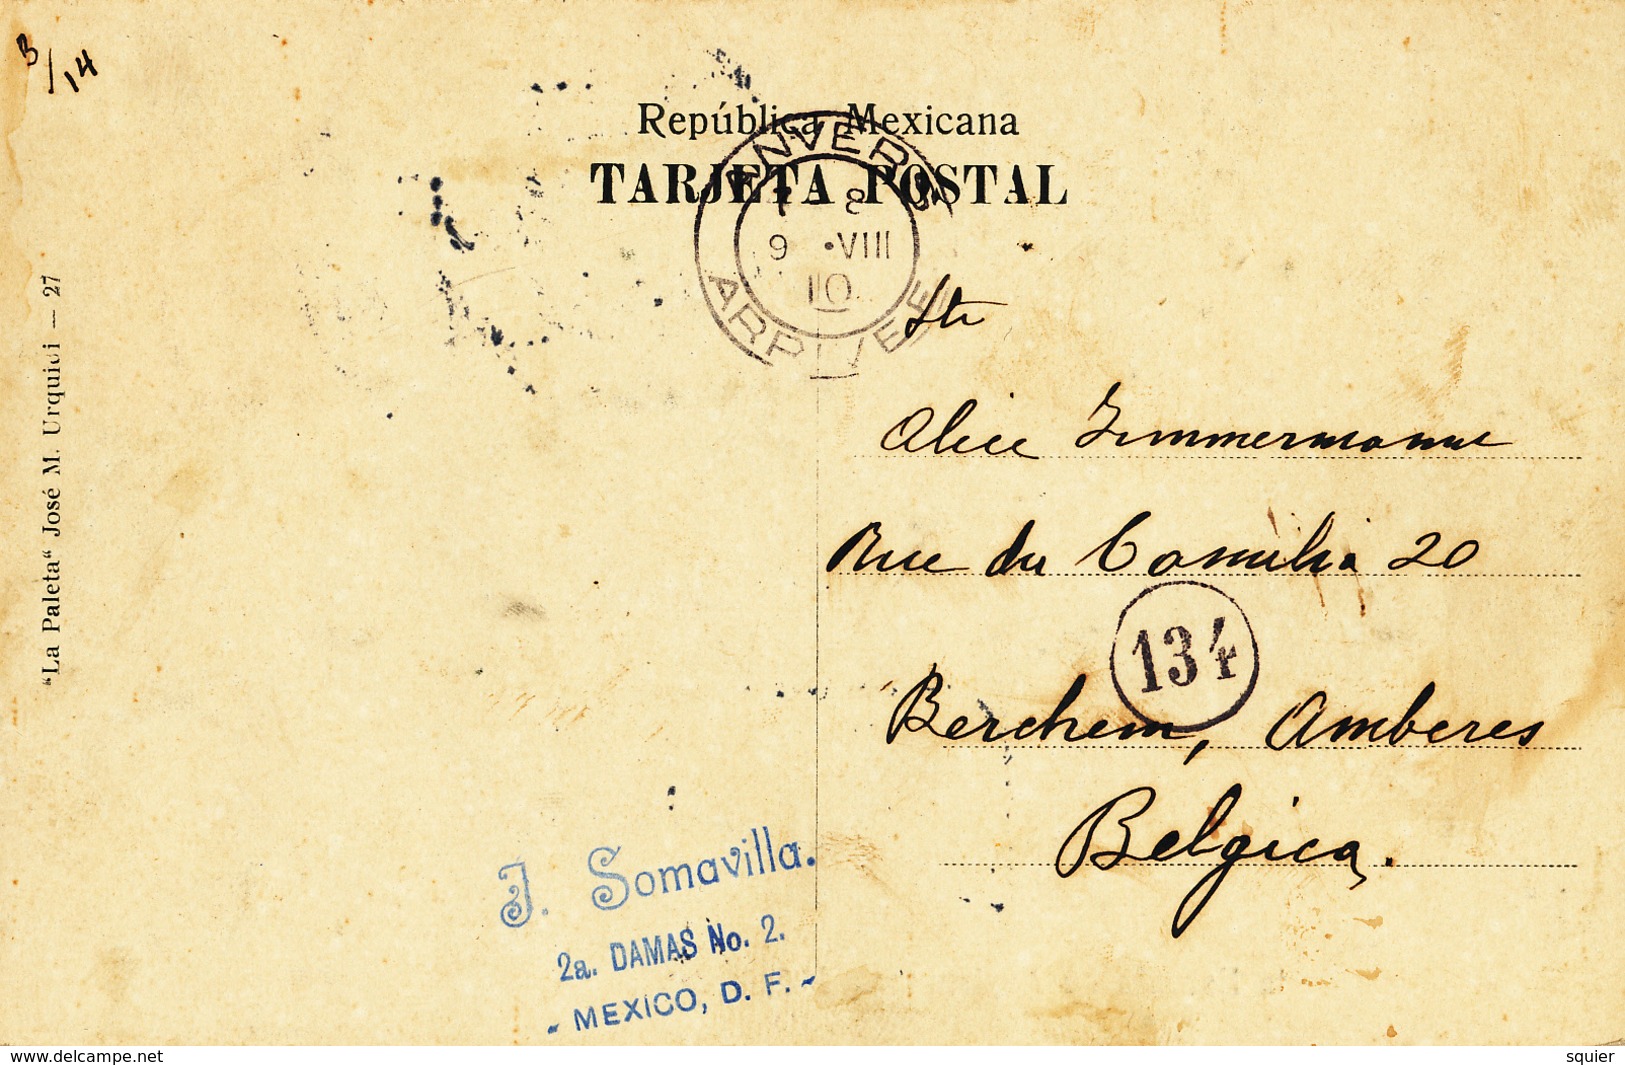 3/14
República Mexicana
TARJETA POSTAL
ANVERS
8
9 •VIII
10
ARRIVEE
Alice Zimmermann
Rue du Camélia 20
134
Berchem, Amberes
Belgica.
"La Paleta" José M. Urquidi — 27
J. Somavilla.
2a. DAMAS No. 2.
- MEXICO, D. F. -
www.delcampe.net
squier